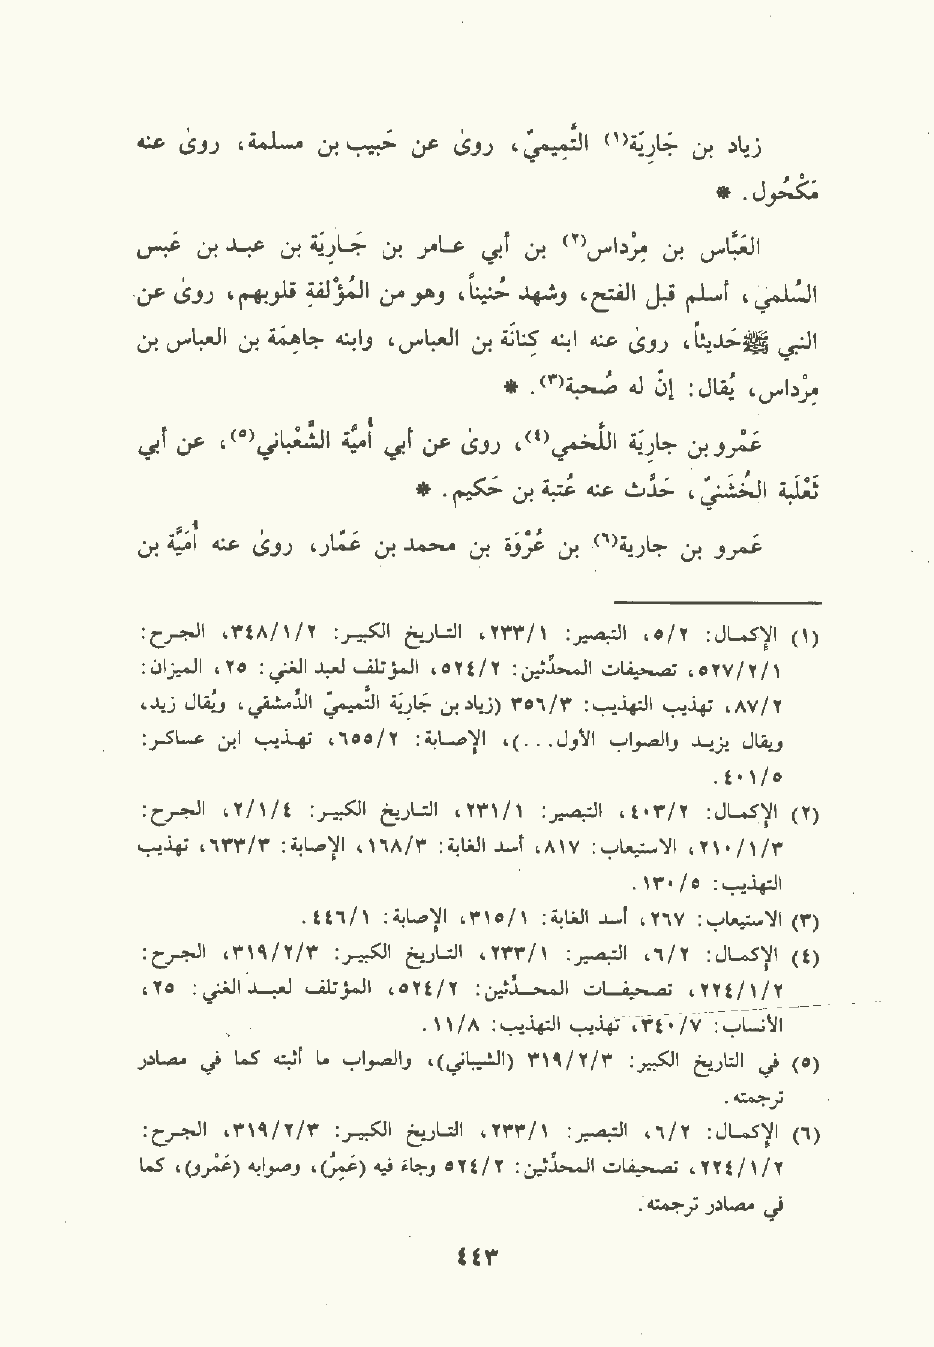 زياد بن جَارِيَة(١) التَّمِيميّ، روىٰ عن حَبيب بن مسلمة، روىٰ عنه
مَكْحُول. *
العَبَّاس بن مِرْداس(٢) بن أبي عامر بن جَارِيَة بن عبد بن عَبس
السُّلمي، أسلم قبل الفتح، وشهد حُنيناً، وهو من المُؤْلَفة قلوبهم، روىٰ عن
النبي ﷺ حَديثاً، روىٰ عنه ابنه كِنانَة بن العباس، وابنه جاهِمَة بن العباس بن
مِرْداس، يُقال: إنَّ له صُحبة(٣). *
عَمْرو بن جارِيَة اللَّخمي(٤)، روىٰ عن أبي أُميَّة الشَّعْباني(٥)، عن أبي
ثَعْلَبة الخُشَنيّ، حَدَّث عنه عُتبة بن حَكيم. *
عَمرو بن جارية(٦) بن عُرْوَة بن محمد بن عَمَّار، روىٰ عنه أُمَيَّة بن
(١) الإكمال: ٥/٢، التبصير: ٢٣٣/١، التاريخ الكبير: ٣٤٨/١/٢، الجرح:
٥٢٧/٢/١، تصحيفات المحدّثين: ٥٢٤/٢، المؤتلف لعبد الغني: ٢٥، الميزان:
٨٧/٢، تهذيب التهذيب: ٣٥٦/٣ (زياد بن جَارِيَة التَّميميّ الدِّمشقي، ويُقال زيد،
ويقال يزيد والصواب الأول...)، الإصابة: ٦٥٥/٢، تهذيب ابن عساكر:
٤٠١/٥.
(٢) الإكمال: ٤٠٣/٢، التبصير: ٢٣١/١، التاريخ الكبير: ٢/١/٤، الجرح:
٢١٠/١/٣، الاستيعاب: ٨١٧، أسد الغابة: ١٦٨/٣، الإصابة: ٦٣٣/٣، تهذيب
التهذيب: ١٣٠/٥.
(٣) الاستيعاب: ٢٦٧، أسد الغابة: ٣١٥/١، الإصابة: ٤٤٦/١.
(٤) الإكمال: ٦/٢، التبصير: ٢٣٣/١، التاريخ الكبير: ٣١٩/٢/٣، الجرح:
٢٢٤/١/٢، تصحيفات المحدّثين: ٥٢٤/٢، المؤتلف لعبد الغني: ٢٥،
الأنساب: ٣٤٠/٧، تهذيب التهذيب: ١١/٨.
(٥) في التاريخ الكبير: ٣١٩/٢/٣ (الشيباني)، والصواب ما أثبته كما في مصادر
ترجمته.
(٦) الإكمال: ٦/٢، التبصير: ٢٣٣/١، التاريخ الكبير: ٣١٩/٢/٣، الجرح:
٢٢٤/١/٢، تصحيفات المحدّثين: ٥٢٤/٢ وجاء فيه (عُمِرُ)، وصوابه (عَمْرو)، كما
في مصادر ترجمته.
٤٤٣